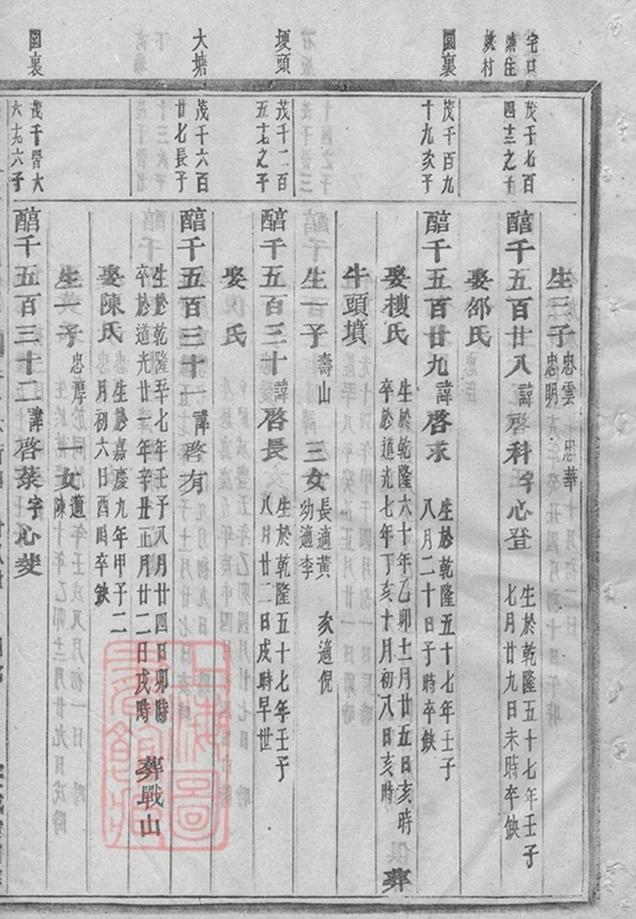 生三子 忠雲 忠明 忠華
宅口 塘住 就村
茂千七百四十三之子
醕千五百廿八 諱啓科 字心登 生於乾隆五十七年壬子七月廿九日未時卒缺
娶邵氏
園裏
茂千百九十九次子
醕千五百廿九 諱啓求 生於乾隆五十七年壬子八月二十日子時卒缺
娶樓氏 生於乾隆六十年乙卯十二月廿五日亥時卒於道光七年丁亥十月初八日亥時 俱葬
牛頭墳
生一子 壽山 三女 長適黃 次適倪 幼適李
埂頭
茂千二百五十七之子
醕千五百三十 諱啓長 生於乾隆五十七年壬子八月廿二日戌時早世
娶氏
大塘
茂千六百廿七長子
醕千五百三十一 諱啓有 生於乾隆五十七年壬子八月廿四日卯時卒於道光廿一年辛丑正月廿二日戌時 葬戰山
娶陳氏 生於嘉慶九年甲子二月初六日酉時卒缺
生一子 忠 一女 適陳
園裏
茂千晉大六十九六子
醕千五百三十二 諱啓棻 字心斐
上海圖書館藏